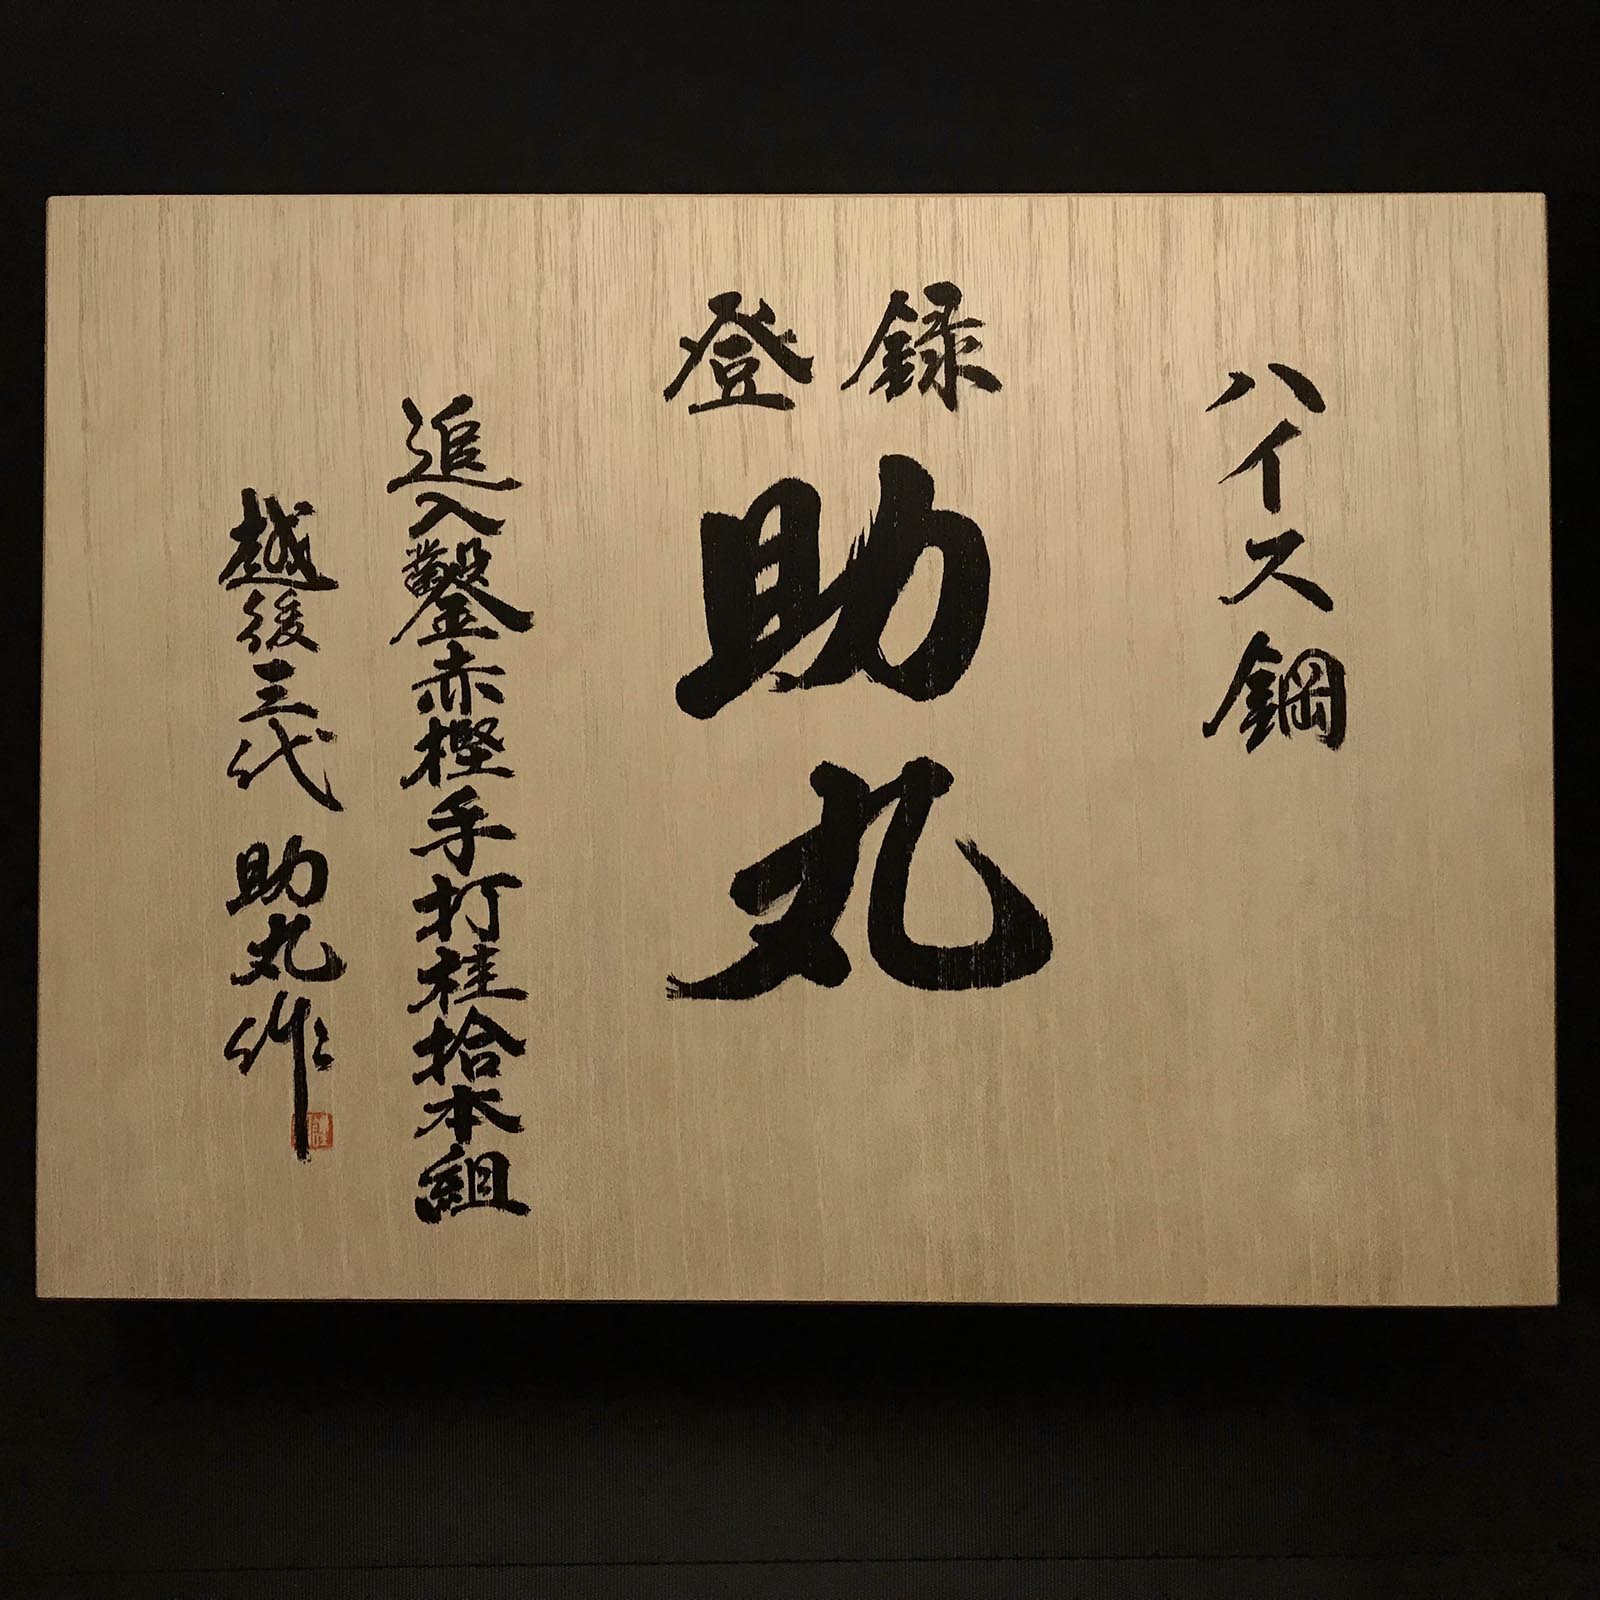 ハイス鋼
登録
助丸
追入鑿赤樫手打桂拾本組
越後三代 助丸作